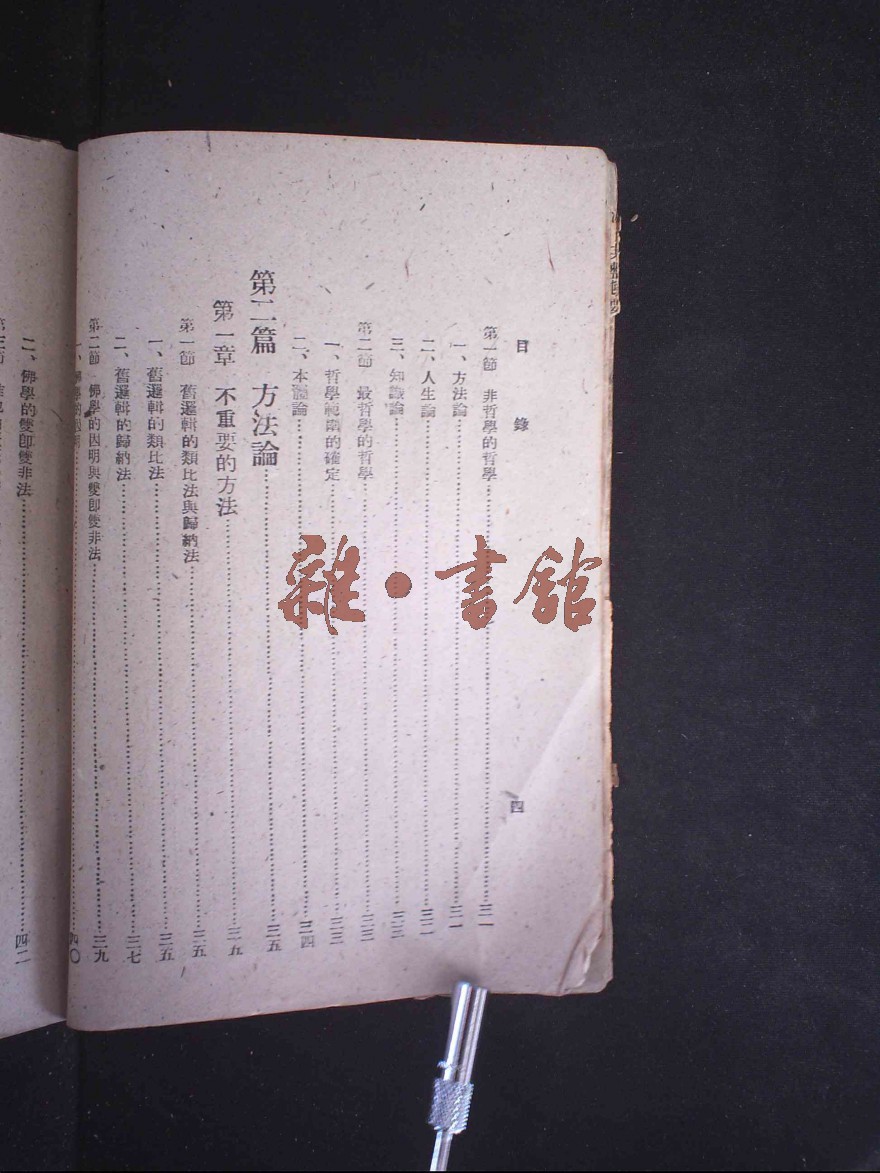 目錄 四
第一節 非哲學的哲學 三一
一、方法論 三一
二、人生論 三二
三、知識論 三三
第二節 最哲學的哲學 三三
一、哲學範圍的確定 三三
二、本體論 三四
第二篇 方法論 三五
第一章 不重要的方法 三五
第一節 舊邏輯的類比法與歸納法 三五
一、舊邏輯的類比法 三五
二、舊邏輯的歸納法 三七
第二節 佛學的因明與雙卽雙非法 三九
一、佛學的因明 四〇
二、佛學的雙卽雙非法 四二
雜·書館